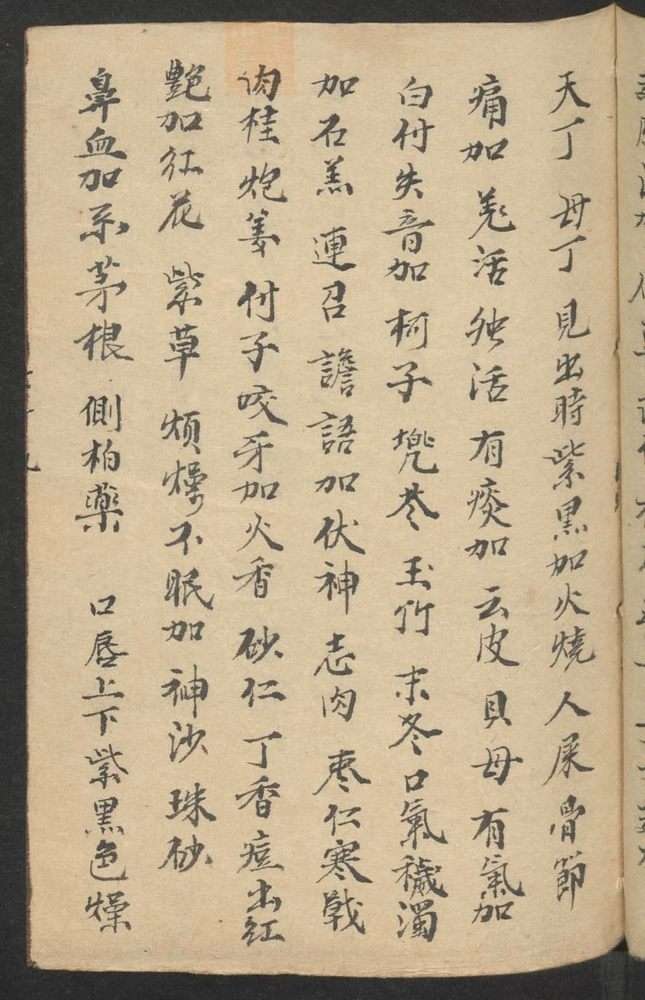 天丁 母丁 見出時紫黑加火燒人屎骨節
痛加 羌活 独活 有痰加 云皮 貝母 有氣加
白付 失音加 柯子 兠苓 玉竹 末冬 口氣穢濁
加石羔 連召 譫語加伏神 志肉 枣仁 寒戰
肉桂 炮姜 付子 咬牙加火香 砂仁 丁香 痘出紅
艷加红花 紫草 煩燥不眠加 神沙 珠砂
鼻血加 茅根 側柏藥 口唇上下紫黑色燥